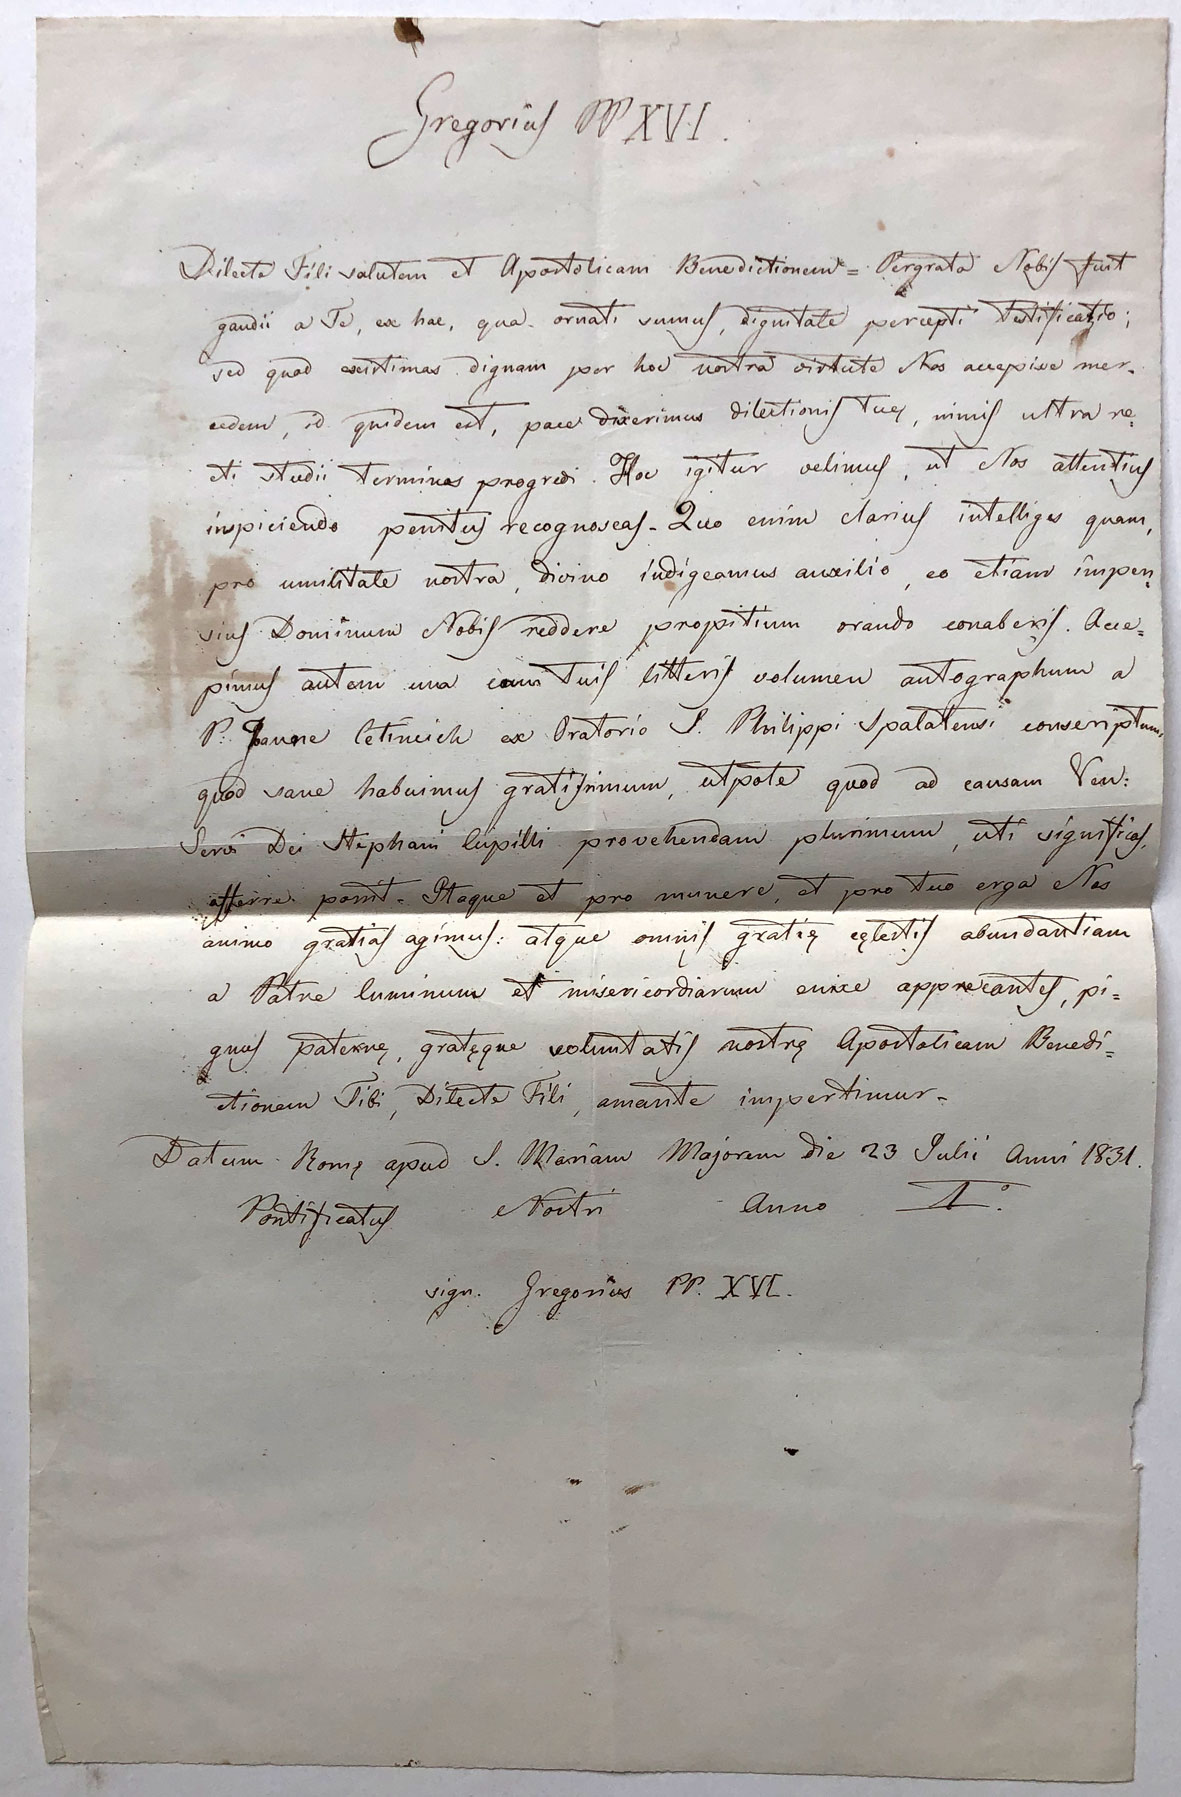 Gregorius PP XVI.
Dilecte Fili salutem et Apostolicam Benedictionem = Pergrata Nobis fuit
gaudii a Te, ex hac, qua ornati sumus, dignitate percepti testificatio;
sed quod existimas dignam per hoc nostra virtute Nos accepisse mer-
cedem, id quidem est, pace dixerimus dilectionis tuę, nimis ultra re-
cti studii terminos progredi. Hoc igitur velimus, ut Nos attentius
inspiciendo penitus recognoscas. Quo enim clarius intelliges quam,
pro umilitate nostra, divino indigeamus auxilio, eo etiam impen=
sius Dominum Nobis reddere propitium orando conaberis. Acce=
pimus autem una cum tuis litteris volumen autographum a
P. Joanne Cetincich ex Oratorio S. Philippi Spalatensi conscriptum,
quod sane habuimus gratissimum, utpote quod ad causam Ven:
Servi Dei Stephani Cupilli provehendam plurimum, uti significas,
afferre possit. Itaque et pro munere, et pro tuo erga Nos
animo gratias agimus: atque omnis gratię cęlestis abundantiam
a Patre luminum et misericordiarum enixe apprecantes, pi=
gnus paternę, gratęque voluntatis nostrę Apostolicam Benedi=
ctionem Tibi, Dilecte Fili, amante impertimur.
Datum Romę apud S. Mariam Majorem die 23 Julii Anni 1831.
Pontificatus Nostri Anno I.°
sign. Gregorius PP. XVI.